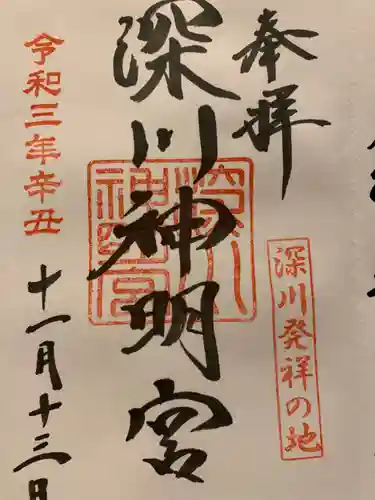 奉拝
深川発祥の地
深川神明宮
令和三年辛丑
十一月十三日